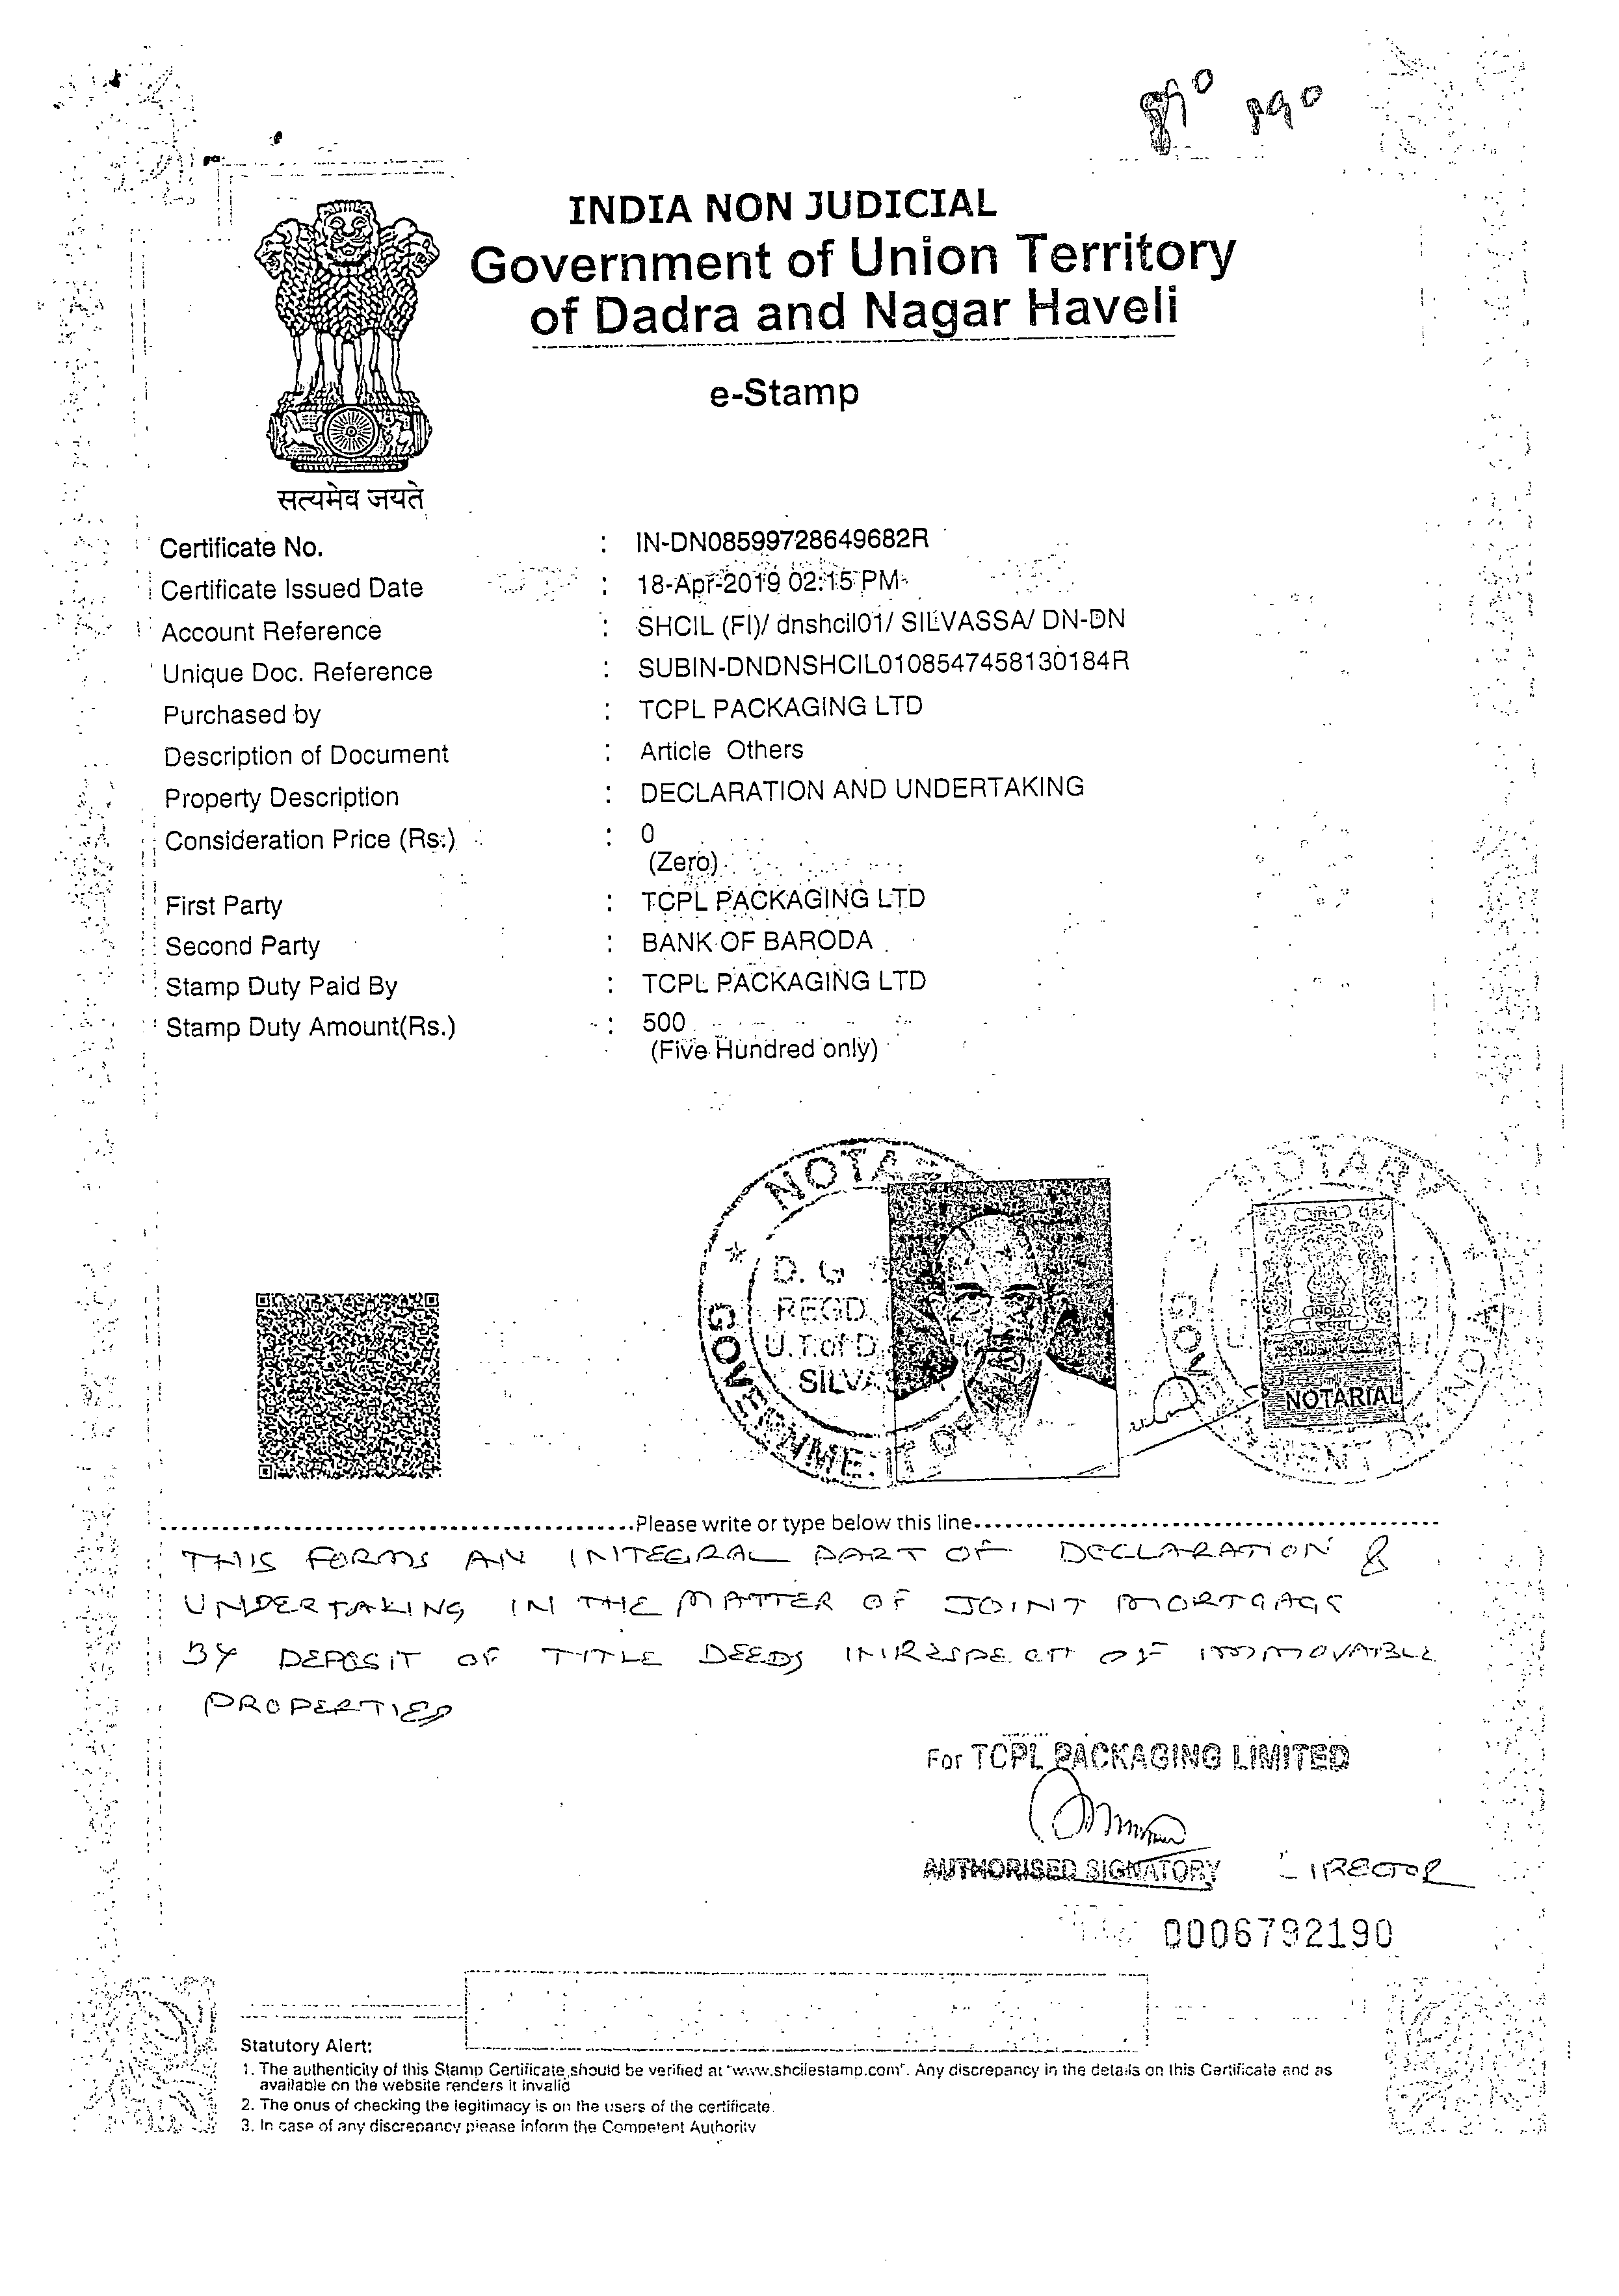 INDIA NON JUDICIAL
Government of Union Territory
of Dadra and Nagar Haveli
e-Stamp
सत्यमेव जयते
Certificate No. : IN-DN08599728649682R
Certificate Issued Date : 18-Apr-2019 02:15 PM
Account Reference : SHCIL (FI)/ dnshcil01/ SILVASSA/ DN-DN
Unique Doc. Reference : SUBIN-DNDNSHCIL0108547458130184R
Purchased by : TCPL PACKAGING LTD
Description of Document : Article Others
Property Description : DECLARATION AND UNDERTAKING
Consideration Price (Rs.) : 0
(Zero)
First Party : TCPL PACKAGING LTD
Second Party : BANK OF BARODA
Stamp Duty Paid By : TCPL PACKAGING LTD
Stamp Duty Amount(Rs.) : 500
(Five Hundred only)
NOTARY
D. G
REGD.
U.T. of D.
SILVASSA
GOVERNMENT OF
NOTARY
INDIA
NOTARIAL
GOVERNMENT OF INDIA
Please write or type below this line
THIS FORMS AN INTEGRAL PART OF DECLARATION &
UNDERTAKING IN THE MATTER OF JOINT MORTGAGE
BY DEPOSIT OF TITLE DEEDS INRESPECT OF IMMOVABLE
PROPERTIES
For TCPL PACKAGING LIMITED
AUTHORISED SIGNATORY DIRECTOR
0006792190
Statutory Alert:
1. The authenticity of this Stamp Certificate should be verified at "www.shcilestamp.com". Any discrepancy in the details on this Certificate and as
available on the website renders it invalid
2. The onus of checking the legitimacy is on the users of the certificate.
3. In case of any discrepancy please inform the Competent Authority